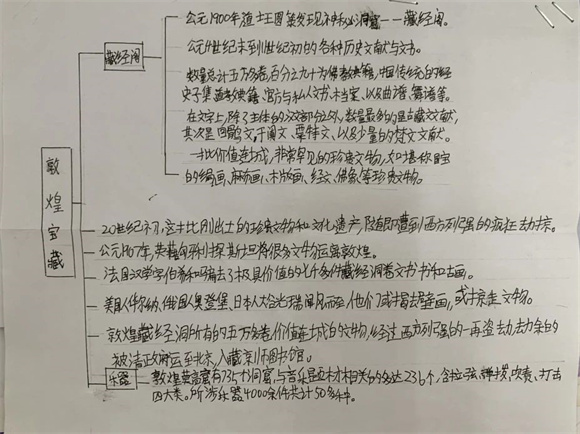 敦煌宝藏
藏经阁
公元1900年道士王圆箓发现神秘洞窟——藏经阁。
公元4世纪末到11世纪初的各种历史文献与文书。
数量总计五万多卷百分之九十为佛教典籍,中国传统的经
史子集道教典籍、官方与私人文书、木占案、以及曲谱、舞谱等。
在文字上,除了主体的汉文部分以外,数量最多的是古藏文文献,
其次是回鹘文,于阗文、粟特文、以及少量的梵文文献。
一批价值连城,非常罕见的珍贵文物,如堪称国宝
的绢画、麻布画、木版画、经文、佛象等珍贵文物。
20世纪初,这批刚出土的珍贵文物和文化遗产,随即遭到西方列强的疯狂劫掠。
公元1907年,英籍匈牙利探斯坦将很多文物运离敦煌。
法国汉学家伯希和骗去了极具价值的七千多件藏经洞卷文书书和古画。
美国人华纳、俄国人奥登堡、日本人大谷光瑞闻风而至,他们或揭去壁画,或掠走文物。
敦煌藏经洞所有的五万多卷价值连城的文物,经过西方列强的一再盗劫劫余的
被清政府运至北京,入藏京师图书馆。
乐器
敦煌莫高窟有735个洞窟,与音乐题材相关的多达236个,含拉弦、弹拨、吹奏、打击
四大类。所涉乐器4000余件共计50多种。